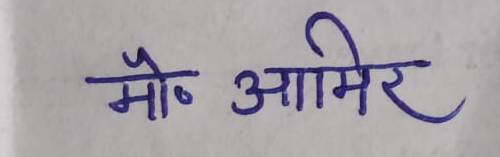 मौ० आमिर